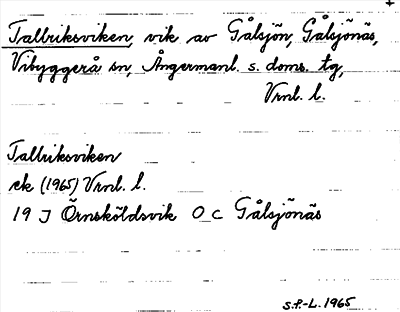 Tallriksviken, vik av Gålsjön, Gålsjönäs,
Vibyggerå sn, Ångermanl. s. doms. tg,
Vrnl. l.
Tallriksviken
ek (1965) Vrnl. l.
19 J Örnsköldsvik O C Gålsjönäs
S.P.-L. 1965